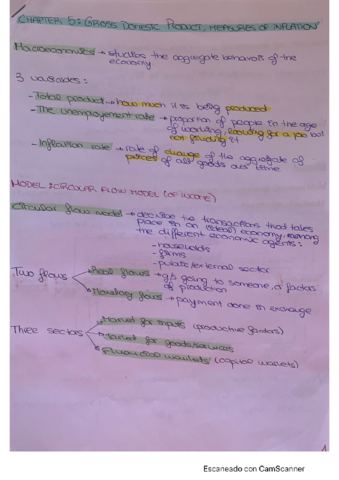 CHAPTER 5: GROSS DOMESTIC PRODUCT, MEASURES OF INFLATION
Macroeconomics → studies the aggregate behaviors of the
economy
3 variables:
- Total product → how much it is being produced
- The unemployment rate → proportion of people in the age
of working, looking for a job but
not finding it
- Inflation rate → rate of change of the aggregate of
prices of all goods over time
MODEL: CIRCULAR FLOW MODEL (OF INCOME)
Circular flow model → describe the transactions that takes
place in an (ideal) economy among
the different economic agents:
- households
- firms
- external sector
Two flows
Real flows → g/s going to someone, factors
of production
Monetary flows → payment done in exchange
Three sectors
Market for inputs (productive factors)
Market for goods/services
Financial markets (capital markets)
1
Escaneado con CamScanner